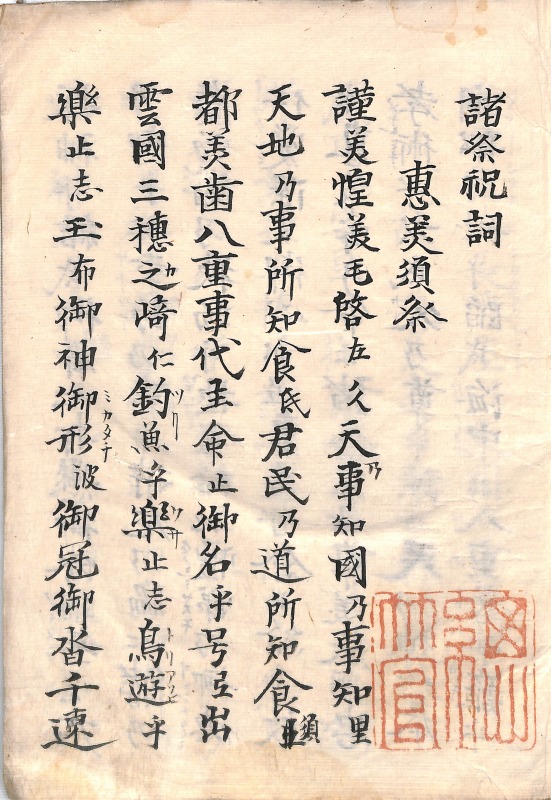 諸祭祝詞
惠美須祭
謹美惶美毛啓左久天事乃知國乃事知里
天地乃事所知食氐君民乃道所知食須
都美歯八重事代主命止御名乎号弖出
雲國三穗之カノ﨑仁釣ツリ魚乎樂止志鳥遊トリアソヒ乎
樂止志玉布御神御形ミカタチ波御冠御沓千速